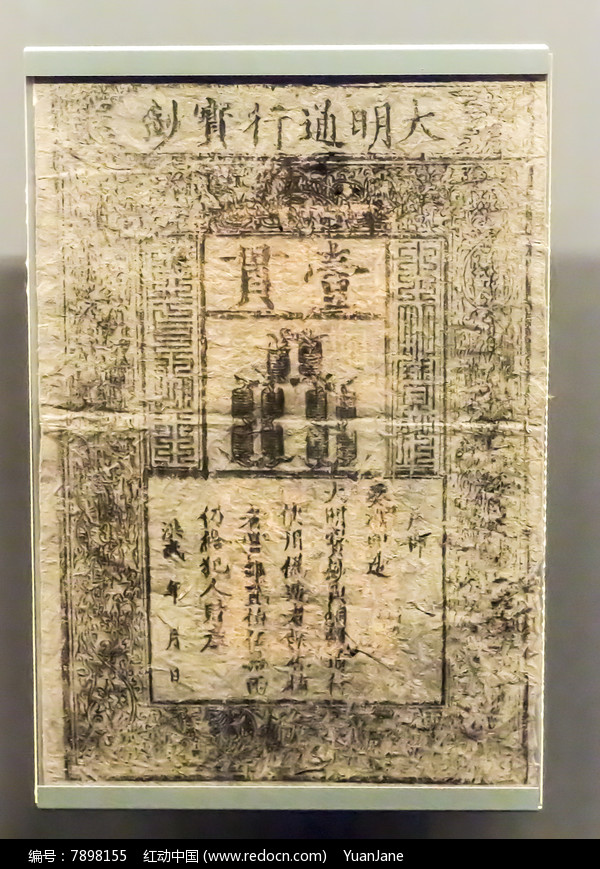 大明通行寳鈔
壹貫
户部
奏准印造
大明寳鈔與銅錢通行
使用偽造者斬告捕
者賞銀貳伯伍拾兩
仍給犯人財產
洪武 年 月 日
编号：7898155 红动中国 (www.redocn.com) YuanJane